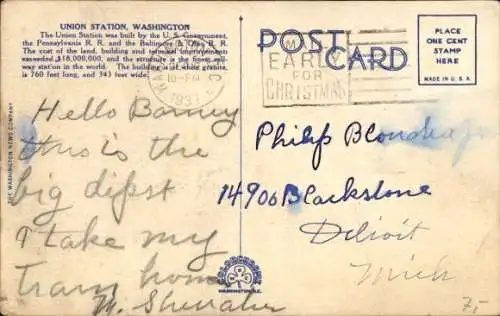 UNION STATION, WASHINGTON
The Union Station was built by the U. S. Government,
the Pennsylvania R. R. and the Baltimore & Ohio R. R.
The cost of the land, building and terminal improvements
exceeded $18,000,000, and the structure is the finest rail-
way station in the world. The building is of white granite,
is 760 feet long, and 343 feet wide.
THE WASHINGTON NEWS COMPANY
1937
POST CARD
MAIL
EARLY
FOR
CHRISTMAS
PLACE
ONE CENT
STAMP
HERE
MADE IN U. S. A.
Hello Barney
this is the
big dipst
I take my
train home
M. Shewaker
Philip
14900 Blackstone
Detroit
Mich
WASHINGTON, D.C.
7,-